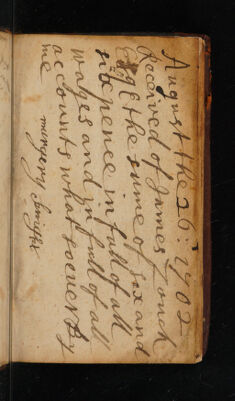 August the 26: 1702
Received of James Zouch
Esq the sume of six and
sixpence in full of all
wages and in full of all
accounts what soever By
me
margery